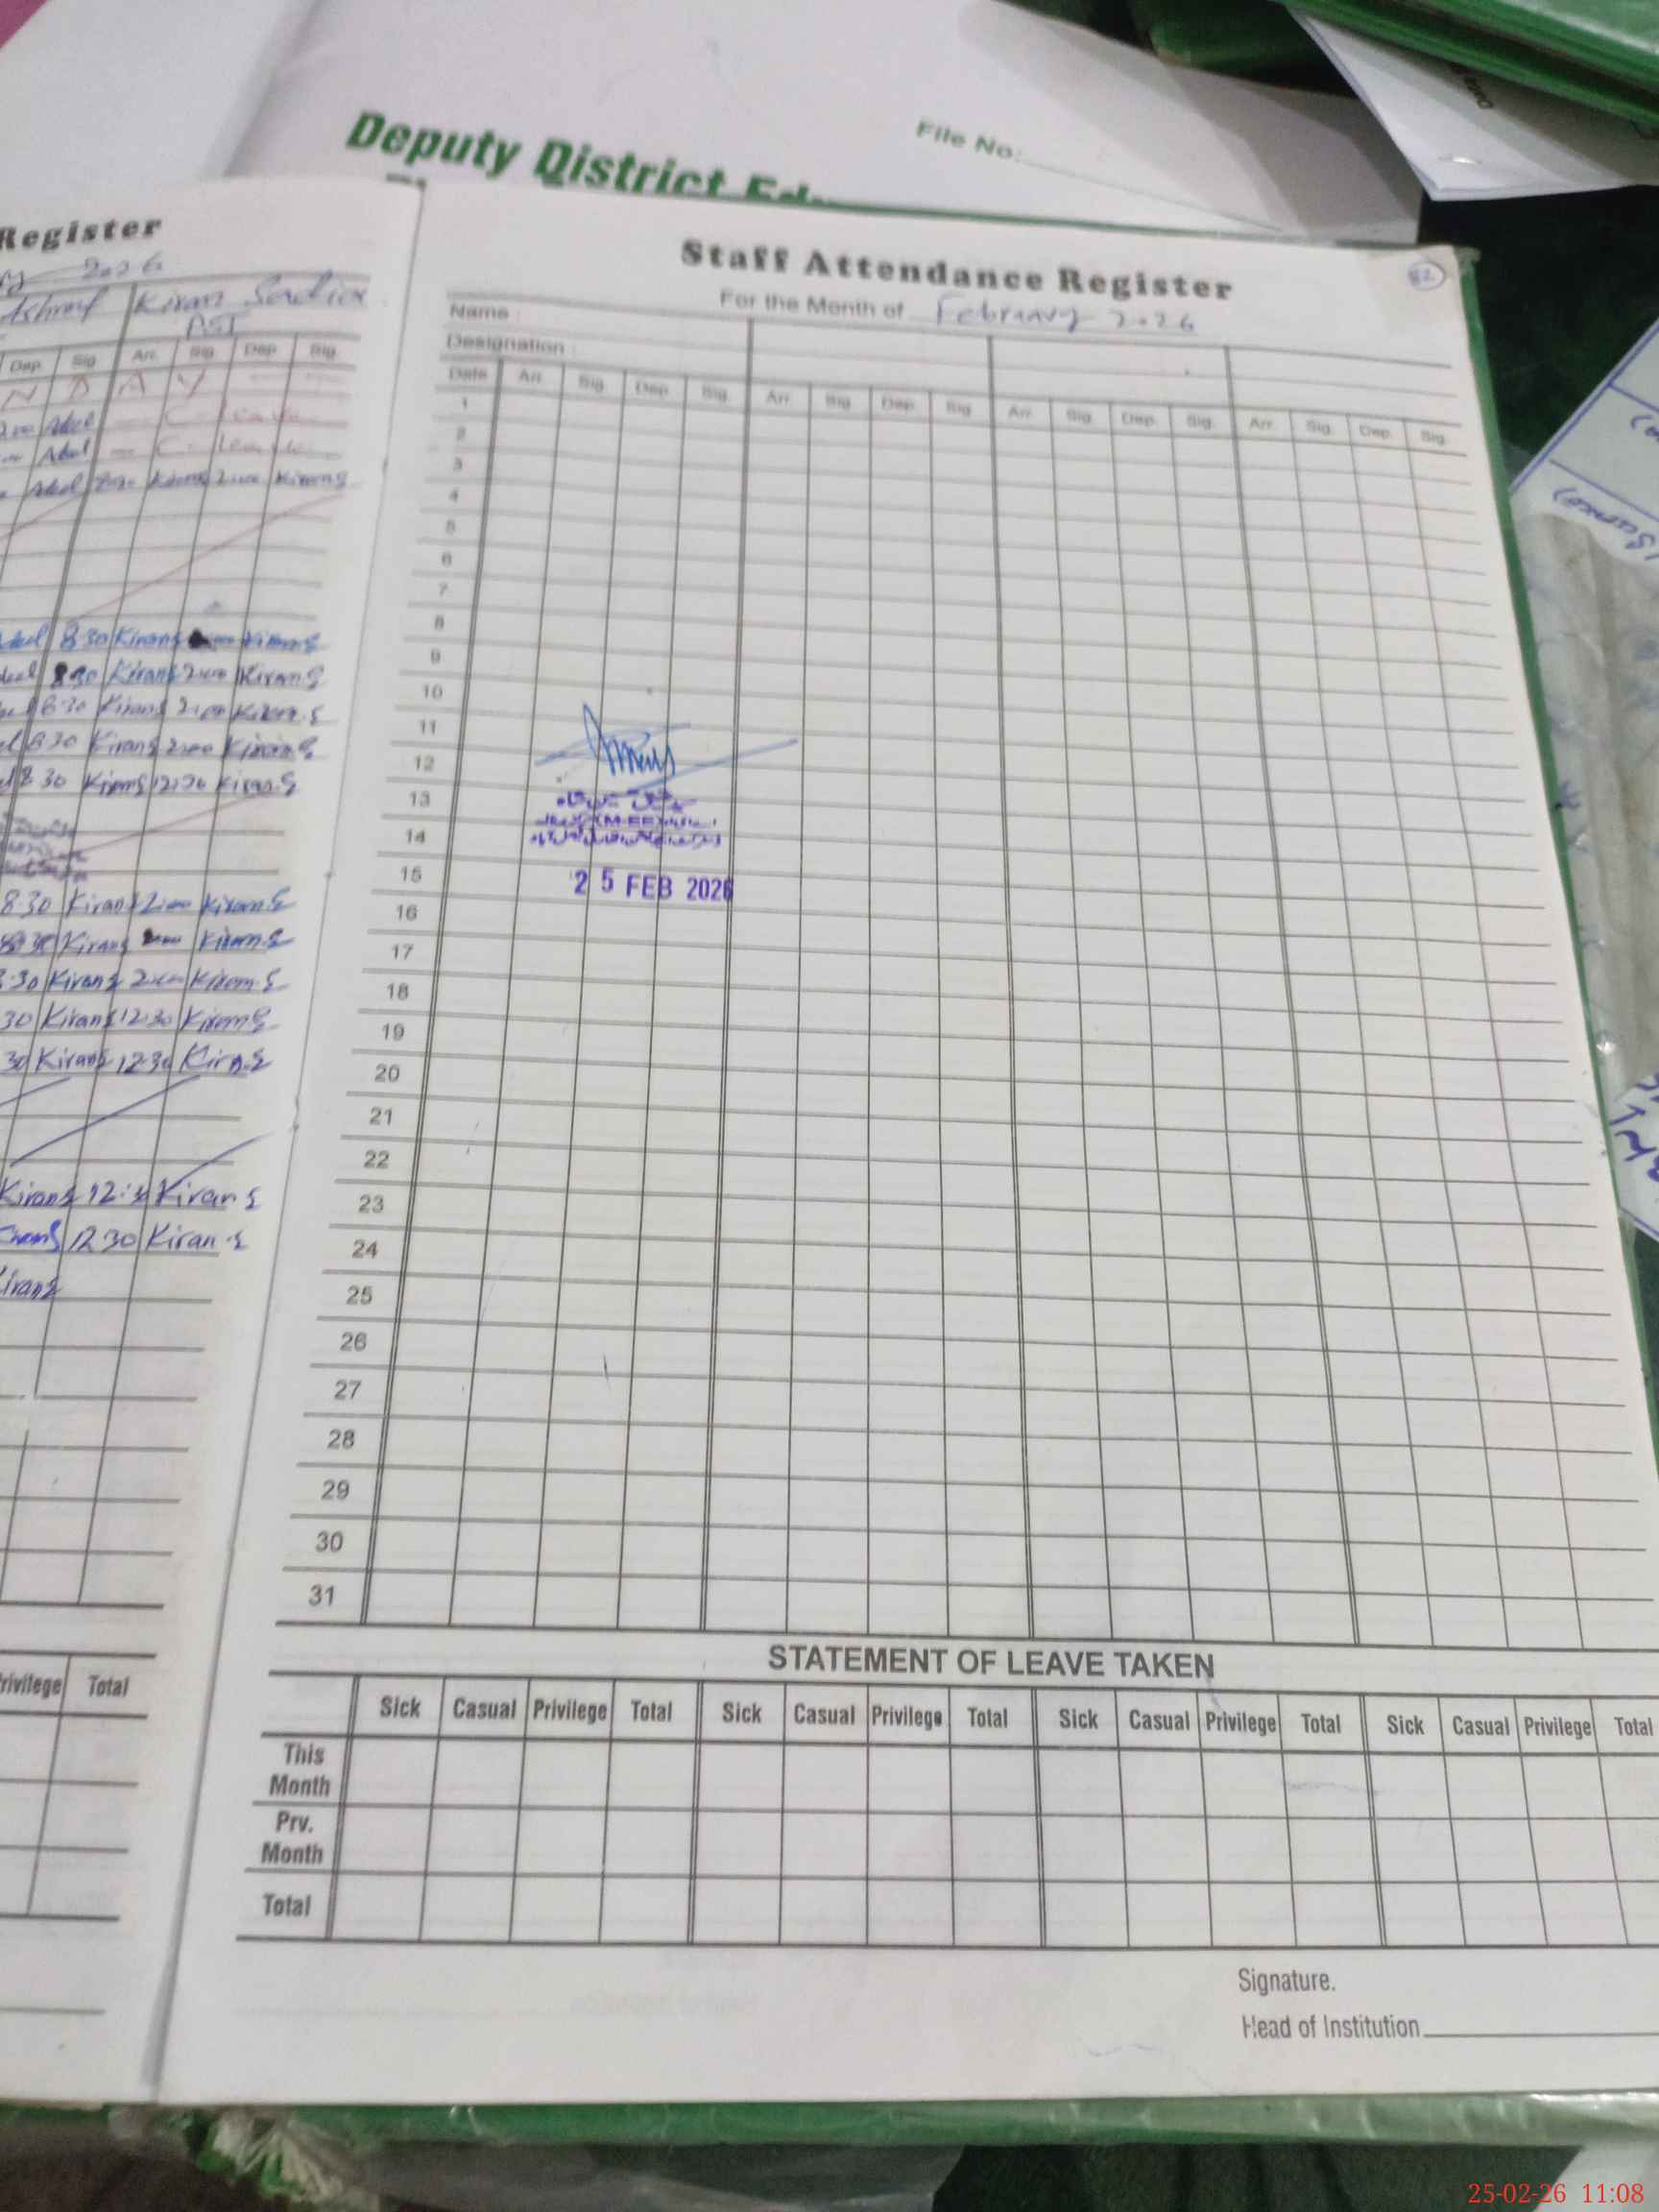 Deputy District
File No:
Register
2026
Ashraf Kiran Sadiea
PST
Dep. Sig. Arr. Sig. Dep. Sig.
N D A Y
Adeel — C - leave
Adeel — C - leave
Adeel Kirans 2:00 Kiran.S
8 30 Kirans Kiran.S
8 30 Kirans 2:00 Kiran.S
8:30 Kirans 2:00 Kiran.S
8 30 Kirans 2:00 Kiran.S
8 30 Kirans 12:30 Kiran.S
8:30 Kirans 2:00 Kiran.S
Kirans Kiran.S
:30 Kirans 2:00 Kiran.S
30 Kirans 12:30 Kiran.S
30 Kirans 12:30 Kiran.S
Kirans 12:30 Kiran.S
Kirans 12 30 Kiran.S
Kirans
Privilege Total
Staff Attendance Register
82
For the Month of February 2026
Name :
Designation :
Date Arr. Sig. Dep. Sig. Arr. Sig. Dep. Sig. Arr. Sig. Dep. Sig. Arr. Sig. Dep. Sig.
1
2
3
4
5
6
7
8
9
10
11
12
13
14
15
25 FEB 2026
16
17
18
19
20
21
22
23
24
25
26
27
28
29
30
31
STATEMENT OF LEAVE TAKEN
Sick Casual Privilege Total Sick Casual Privilege Total Sick Casual Privilege Total Sick Casual Privilege Total
This
Month
Prv.
Month
Total
Signature.
Head of Institution
25-02-26 11:08